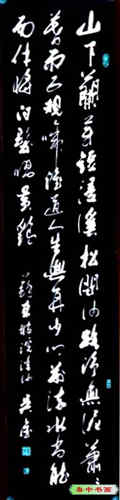 山下蘭芽短浸溪松間沙路淨無泥蕭
暮雨子規啼誰道人生無再少門前流水尚能
西休將白髮唱黃雞
浣溪沙